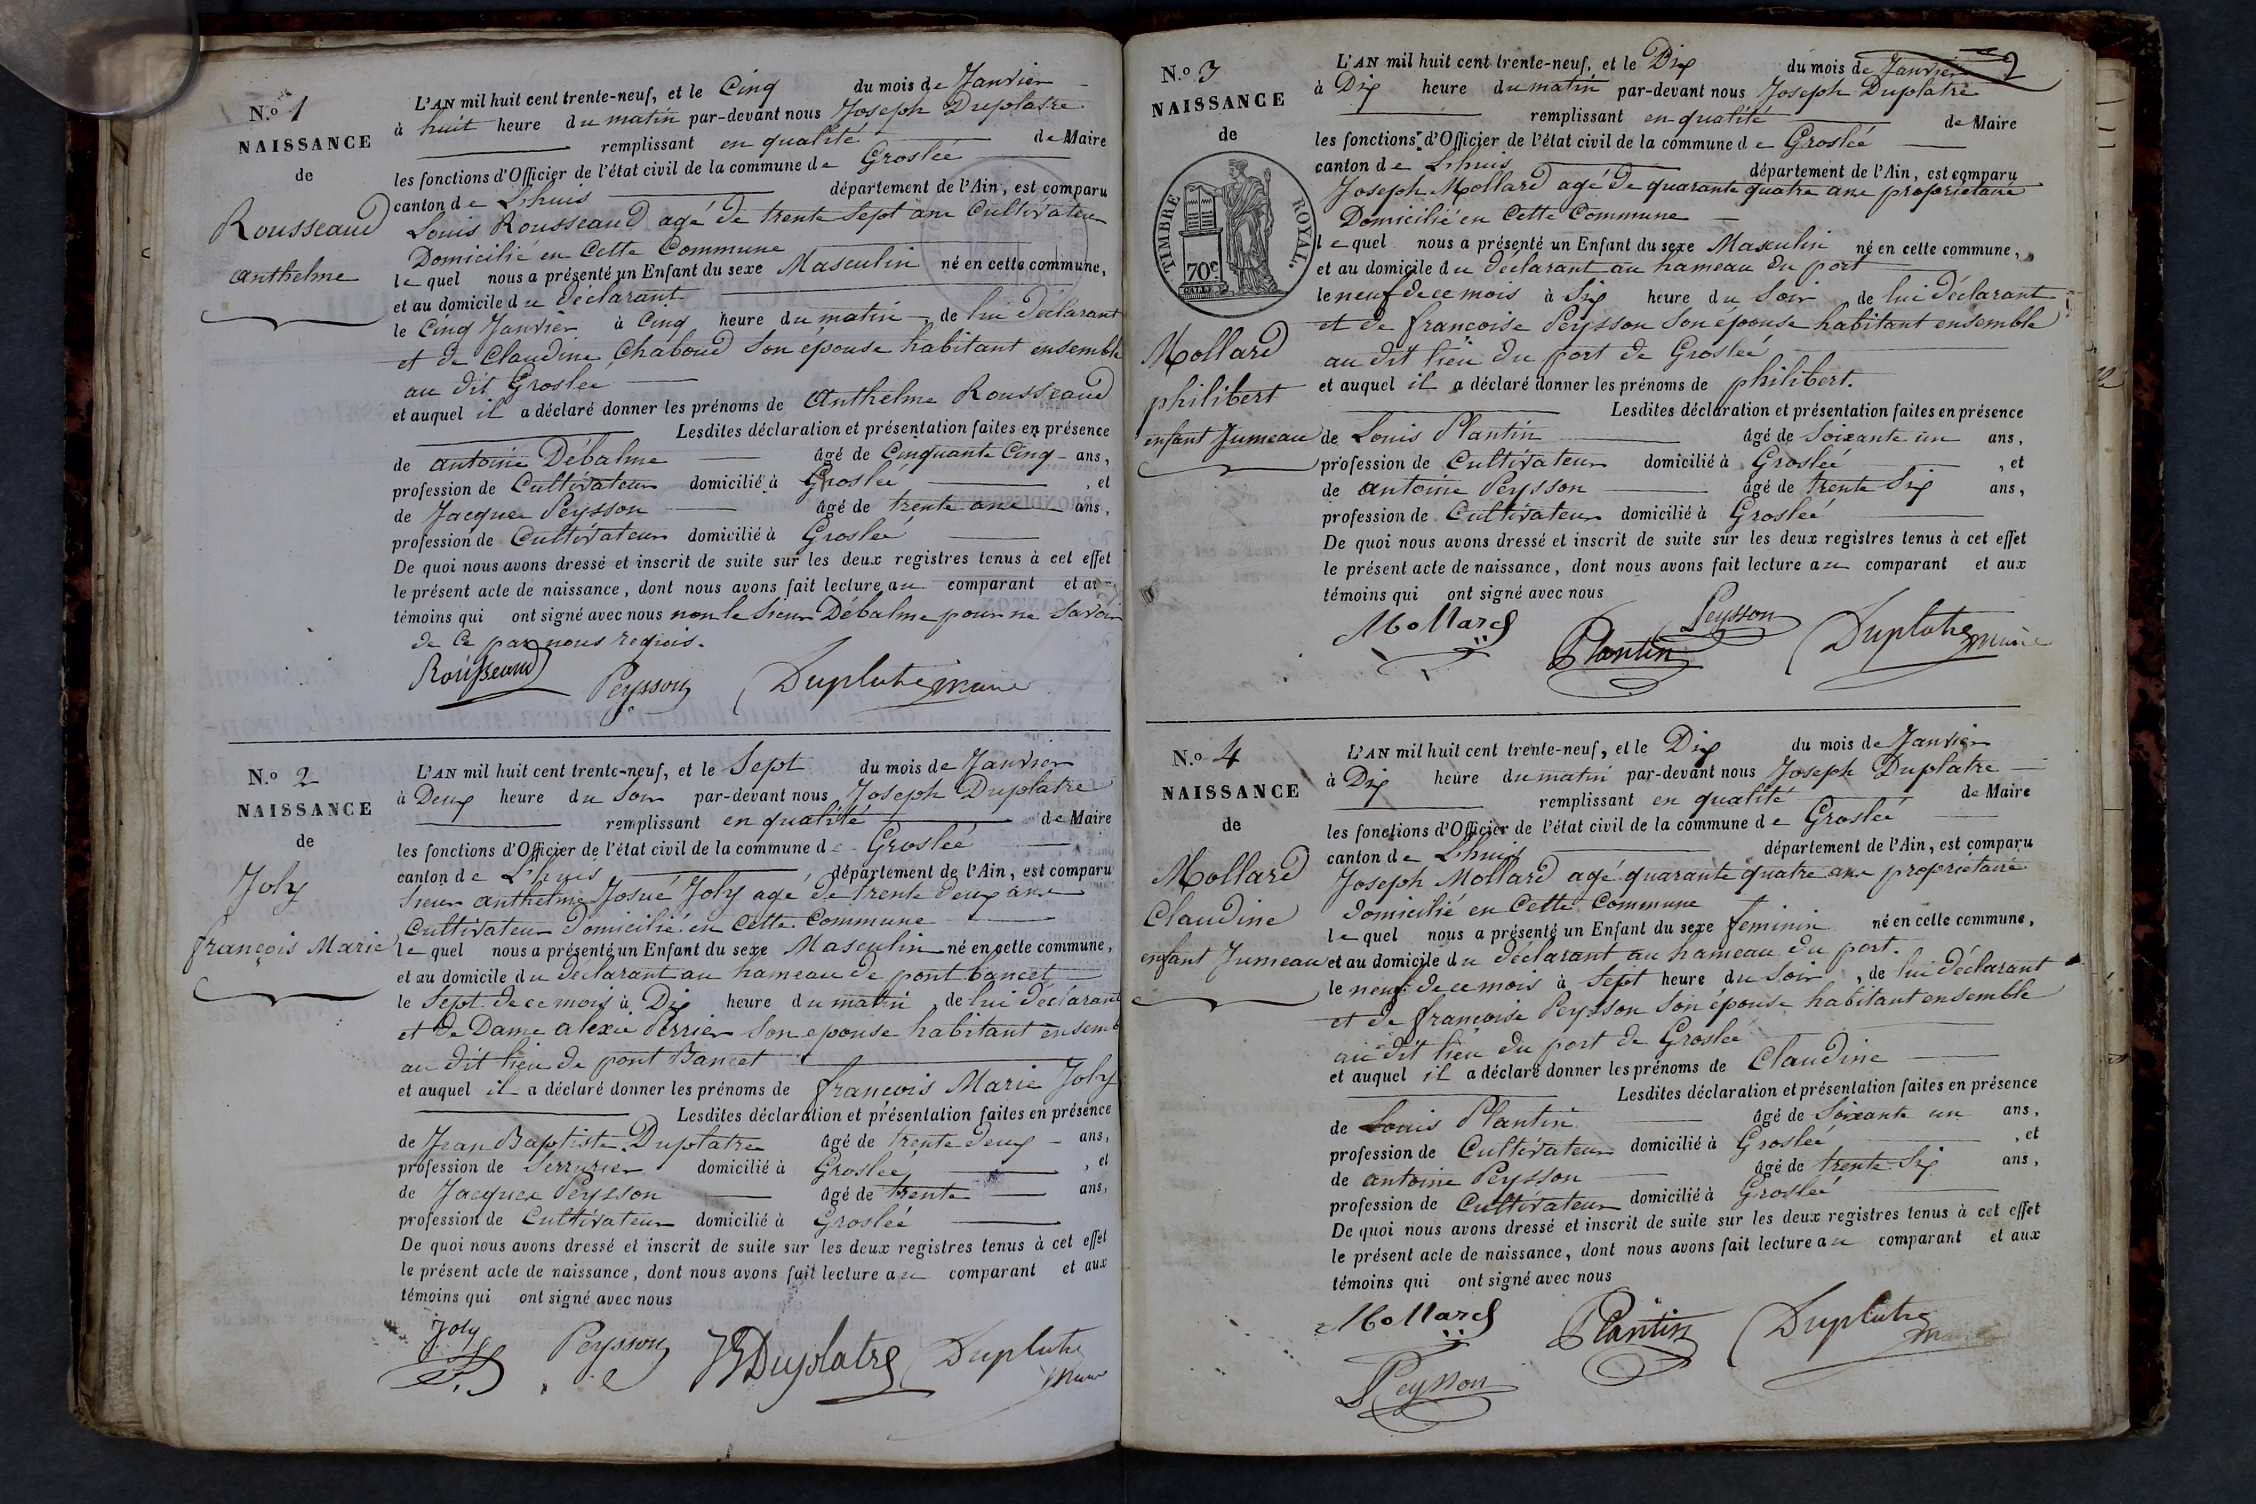 N.o 1
NAISSANCE
de
Rousseaud
anthelme
L'AN mil huit cent trente-neuf, et le Cinq du mois de Janvier
à huit heure du matin par-devant nous Joseph Duplatre
remplissant en qualité de Maire
les fonctions d'Officier de l'état civil de la commune de Grosleé
canton de L'huis département de l'Ain, est comparu
Louis Rousseaud agé de trente Sept ans Cultivateur
Domicilié en Cette Commune
le quel nous a présenté un Enfant du sexe Masculin né en cette commune,
et au domicile du déclarant
le Cinq Janvier à Cinq heure du matin, de lui déclarant
et de Claudine Chaboud Son épouse habitant ensemble
au dit Grosleé
et auquel il a déclaré donner les prénoms de Anthelme Rousseaud
Lesdites déclaration et présentation faites en présence
de antoine Débalme âgé de Cinquante Cinq ans,
profession de Cultivateur domicilié à Grosleé, et
de Jacques Peysson âgé de trente ans ans,
profession de Cultivateur domicilié à Grosleé
De quoi nous avons dressé et inscrit de suite sur les deux registres tenus à cet effet
le présent acte de naissance, dont nous avons fait lecture au comparant et aux
témoins qui ont signé avec nous non le Sieur Débalme pour ne Savoir
de Ce par nous requis.
Rousseaud Peysson Duplatre maire
N.o 2
NAISSANCE
de
Joly
françois Marie
L'AN mil huit cent trente-neuf, et le Sept du mois de Janvier
à Deux heure du Soir par-devant nous Joseph Duplatre
remplissant en qualité de Maire
les fonctions d'Officier de l'état civil de la commune de Grosleé
canton de L'huis département de l'Ain, est comparu
Sieur anthelme Josué Joly agé de trente deux ans
Cultivateur Domicilié en Cette Commune
le quel nous a présenté un Enfant du sexe Masculin né en cette commune,
et au domicile du déclarant au hameau de pont bancet
le Sept de ce mois à Dix heure du matin, de lui déclarant
et de Dame alexie Perrier Son epouse habitant ensemb
au dit lieu de pont Bancet
et auquel il a déclaré donner les prénoms de françois Marie Joly
Lesdites déclaration et présentation faites en présence
de Jean Baptiste Duplatre âgé de trente deux ans,
profession de Serrurier domicilié à Grosleé, et
de Jacques Peysson âgé de trente ans,
profession de Cultivateur domicilié à Grosleé
De quoi nous avons dressé et inscrit de suite sur les deux registres tenus à cet effet
le présent acte de naissance, dont nous avons fait lecture au comparant et aux
témoins qui ont signé avec nous
Joly Peysson JBDuplatre Duplatre maire
N.o 3
NAISSANCE
de
TIMBRE ROYAL.
70c
Mollard
philibert
enfant Jumeau
2
L'AN mil huit cent trente-neuf, et le Dix du mois de Janvier
à Dix heure du matin par-devant nous Joseph Duplatre
remplissant en qualité de Maire
les fonctions d'Officier de l'état civil de la commune de Grosleé
canton de L'huis département de l'Ain, est comparu
Joseph Mollard agé de quarante quatre ans propriétaire
Domicilié en Cette Commune
le quel nous a présenté un Enfant du sexe Masculin né en cette commune,
et au domicile du déclarant au hameau du port
le neuf de ce mois à Six heure du Soir, de lui déclarant
et de francoise Peysson Son épouse habitant ensemble
au dit lieu du port de Grosleé
et auquel il a déclaré donner les prénoms de philibert.
Lesdites déclaration et présentation faites en présence
de Louis Plantin âgé de Soixante un ans,
profession de Cultivateur domicilié à Grosleé, et
de antoine Peysson âgé de trente Six ans,
profession de Cultivateur domicilié à Grosleé
De quoi nous avons dressé et inscrit de suite sur les deux registres tenus à cet effet
le présent acte de naissance, dont nous avons fait lecture au comparant et aux
témoins qui ont signé avec nous
Mollard Plantin Peysson Duplatre maire
N.o 4
NAISSANCE
de
Mollard
Claudine
enfant Jumeau
L'AN mil huit cent trente-neuf, et le Dix du mois de Janvier
à Dix heure du matin par-devant nous Joseph Duplatre
remplissant en qualité de Maire
les fonctions d'Officier de l'état civil de la commune de Grosleé
canton de L'huis département de l'Ain, est comparu
Joseph Mollard agé quarante quatre ans propriétaire
domicilié en Cette Commune
le quel nous a présenté un Enfant du sexe feminin né en cette commune,
et au domicile du déclarant au hameau du port.
le neuf de ce mois à Sept heure du Soir, de lui déclarant
et de francoise Peysson Son épouse habitant ensemble
au dit lieu du port de Grosleé
et auquel il a déclaré donner les prénoms de Claudine
Lesdites déclaration et présentation faites en présence
de Louis Plantin âgé de Soixante un ans,
profession de Cultivateur domicilié à Grosleé, et
de antoine Peysson âgé de trente Six ans,
profession de Cultivateur domicilié à Grosleé
De quoi nous avons dressé et inscrit de suite sur les deux registres tenus à cet effet
le présent acte de naissance, dont nous avons fait lecture au comparant et aux
témoins qui ont signé avec nous
Mollard Plantin Duplatre maire
Peysson